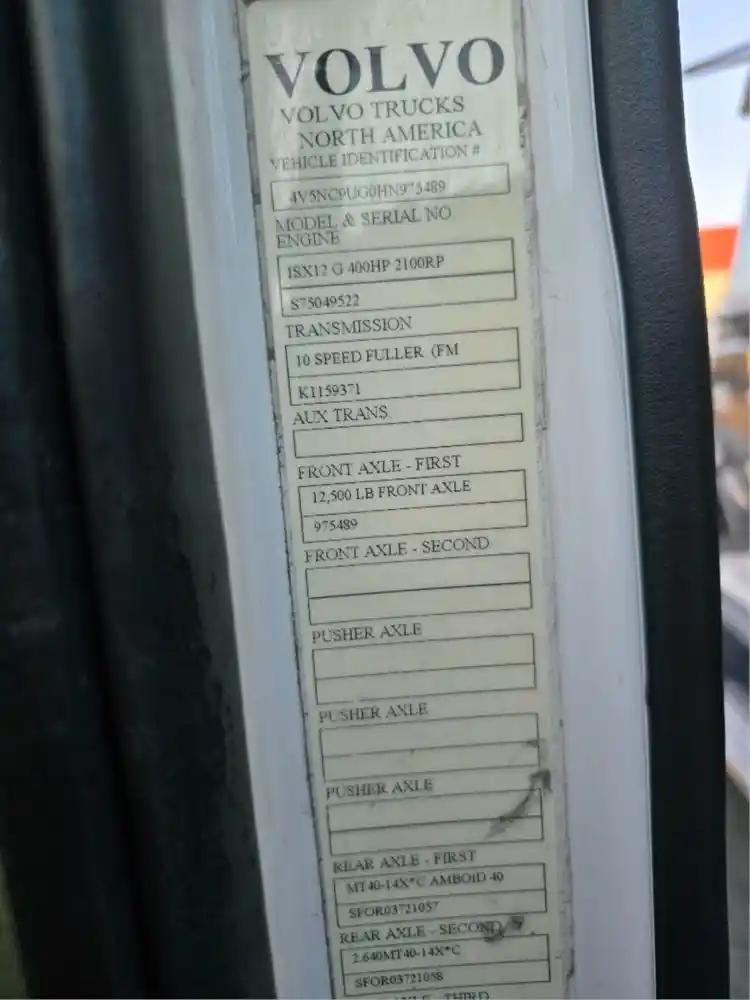 VOLVO
VOLVO TRUCKS
NORTH AMERICA
VEHICLE IDENTIFICATION #
MODEL & SERIAL NO
ENGINE
ISX12 G 400HP 2100RP
S75049522
TRANSMISSION
10 SPEED FULLER (FM
K1159371
AUX TRANS
FRONT AXLE - FIRST
12,500 LB FRONT AXLE
975489
FRONT AXLE - SECOND
PUSHER AXLE
PUSHER AXLE
PUSHER AXLE
REAR AXLE - FIRST
MT40-14X*C AMBOID 40
SFOR03721057
REAR AXLE - SECOND
2.640MT40-14X*C
SFOR03721058
AXLE - THIRD